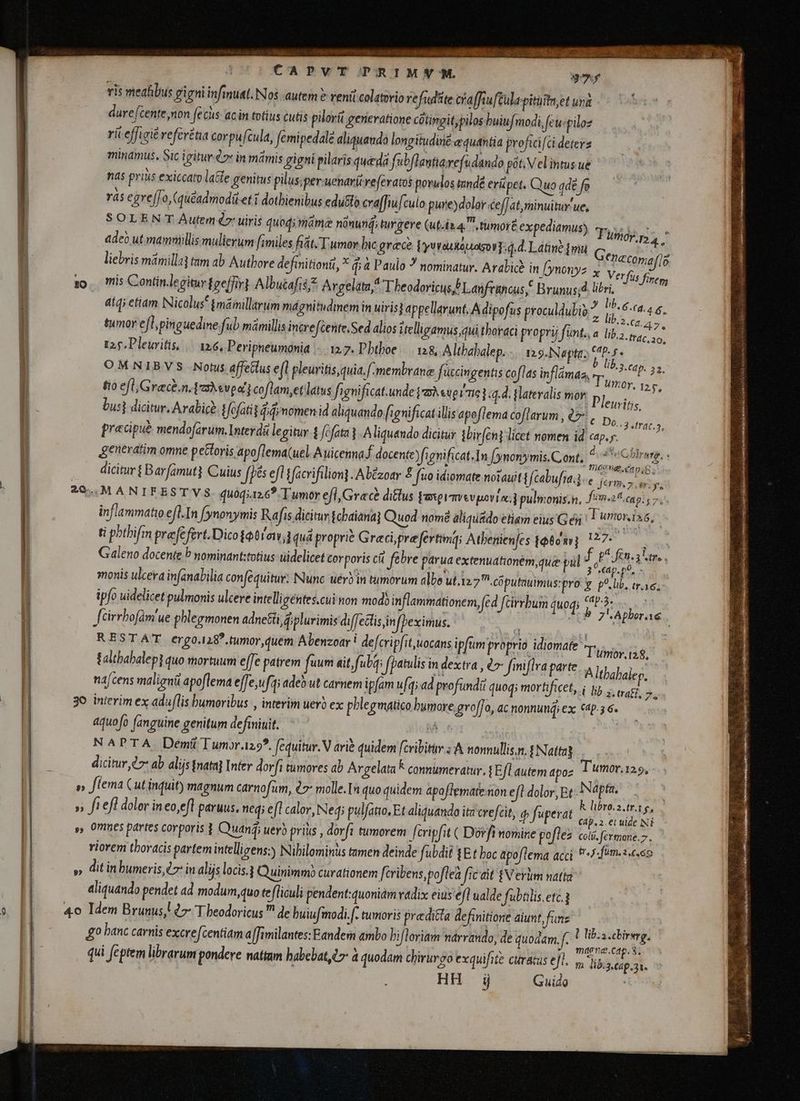 CAPVT PRIMVM.
ris meatibus gigni insinuat. Nos autem è renũ colatorio resudãte crassiuscula pituita, et unà
durescente, non secus ac in totius cutis pilorũ generatione cõtingit, pilos huiusmodi, seu piloz
rũ effigiẽ referẽtia corpuscula, semipedalẽ aliquando longitudinẽ æquantia proficisci deter
minamus. Sic igitur & in mãmis gigni pilaris quædã substantia resudando põt. Vel intus ue
nas prius exiccato lacte genitus pilus, per uenarũ reseratos porulos tandẽ erũpet. Quo qdẽ fo
ras egresso, (quẽadmodũ et ĩ dothienibus educto crassiusculo pure) dolor cessat, minuitur ue.
SOLENT Autem & uiris quoq; mãmæ nõnunq; turgere (ut.124.m tumorẽ expediamus) Tumor.124.
adeò ut mammillis mulierum similes fiãt. Tumor hic græcè {γυναικόμασον}. q.d. Latinè {mu Genæcomastõ
liebris mãmilla} tam ab Authore definitionũ, x q; à Paulo y nominatur. Arabicè in synonyz x Versus finem
10 mis Contin. legitur {gessir}. Albucasis, z Argelata, a Theodoricus, b Lanfrancus, c Brunus, d libri.
atq; etiam Nicolus e {mãmillarum magnitudinem in uiris} appellarunt. Adiposus proculdubiò y lib.6.ca.46.
tumor est, pinguedine sub mãmillis increscente. Sed alios ĩtelligamus, qui thoraci proprij sunt. z lib.2.ca.47.
a lib.2.trac.20.
125. Pleuritis, 126. Peripneumonia. 127. Phthoe 128. Althahalep. 129. Napta. cap.5.
OMNIBVS Notus affectus est pleuritis, quia.s. membranæ succingentis costas inflãmaz b lib.3.cap.32.
tio est, Græcè.n. {πλευρὰ} costam, et latus significat. unde {πλευρῖτις}. q.d. {lateralis mor Tumor.125.
Pleuritis.
bus} dicitur. Arabicè {sosati} q; nomen id aliquando significat illis apostema costarum, & c Do.3.trac.3.
præcipuè mendosarum. Interdũ legitur {sosata}. Aliquando dicitur {birsen} licet nomen id cap.5.
generatim omne pectoris apostema (uel Auicenna f docente) significat. In synonymis. Cont. d
dicitur {Barsamut} Cuius spẽs est {sacrifilion}. Abẽzoar g suo idiomate notauit {scabusia}.
20. MANIFESTVS quoq;.126.us Tumor est, Græcè dictus {περιπνευμονία} pulmonis.n.
inflammatio est. In synonymis Rasis dicitur {chaiana} Quod nomẽ aliquãdo etiam eius Gen Tumor.126.
ti phthisin præfefert. Dico {φθίσιν,} quã propriè Græci, præsertimq; Athenienses {φθόην} 127.
Galeno docente h nominant: totius uidelicet corporis cũ febre parua extenuationẽm, quæ pul
monis ulcera insanabilia consequitur: Nunc uerò in tumorum albo ut.127.m cõputauimus: pro
ipso uidelicet pulmonis ulcere intelligentes. cui non modò inflammationem, sed scirrhum quoq;
scirrhosãm ue phlegmonen adnecti, q; plurimis dissectis, inspeximus. h 7. Aphor.16
RESTAT ergo.128.us tumor, quem Abenzoar i descripsit, uocans ipsum proprio idiomate Tumor.128.
{althahalep} quo mortuum esse patrem suum ait, subq; spatulis in dextra, & sinistra parte Althahalep.
nascens malignũ apostema esse, usq; adeò ut carnem ipsam usq; ad profundũ quoq; mortificet, i lib 2. tract. 7.
30 interim ex adustis humoribus, interim uerò ex phlegmatico humore grosso, ac nonnunq; ex cap.36.
aquoso sanguine genitum definiuit.
NAPTA Demũ Tumor.129.us sequitur. Variè quidem scribitur: A nonnullis.n. {Natta}
dicitur, & ab alijs {nata} Inter dorsi tumores ab Argelata k connumeratur. {Est autem apoz Tumor.129.
„ stema (ut inquit) magnum carnosum, & molle. In quo quidem apostemate non est dolor, Et Napta.
„ si est dolor in eo, est paruus, neq; est calor, Neq; pulsatio, Et aliquando ita crescit, q, superat k libro.2.tr.15.
„ omnes partes corporis} Quanq; uerò prius, dorsi tumorem scripsit (Dorsi nomine postez cap.2. et uide Ni
colũ. sermone.7.
riorem thoracis partem intelligens;) Nihilominus tamen deinde subdit {Et hoc apostema acci
„ dit in humeris, & in alijs locis.} Quinimmò curationem scribens, posteà sic ait {Verùm natta
aliquando pendet ad modum, quo testiculi pendent: quoniam radix eius est ualde subtilis. etc.}
40 Idem Brunus, l & Theodoricus m de huiusmodi.s. tumoris prædicta definitione aiunt, sunz
go hanc carnis excrescentiam assimilantes: Eandem ambo historiam narrando, de quodam.s. l lib.2. chirurg.
magnæ. cap.8.
qui septem librarum pondere nattam habebat, & à quodam chirurgo exquisitè curatus est. m lib.3.cap.31.
HH ij Guido